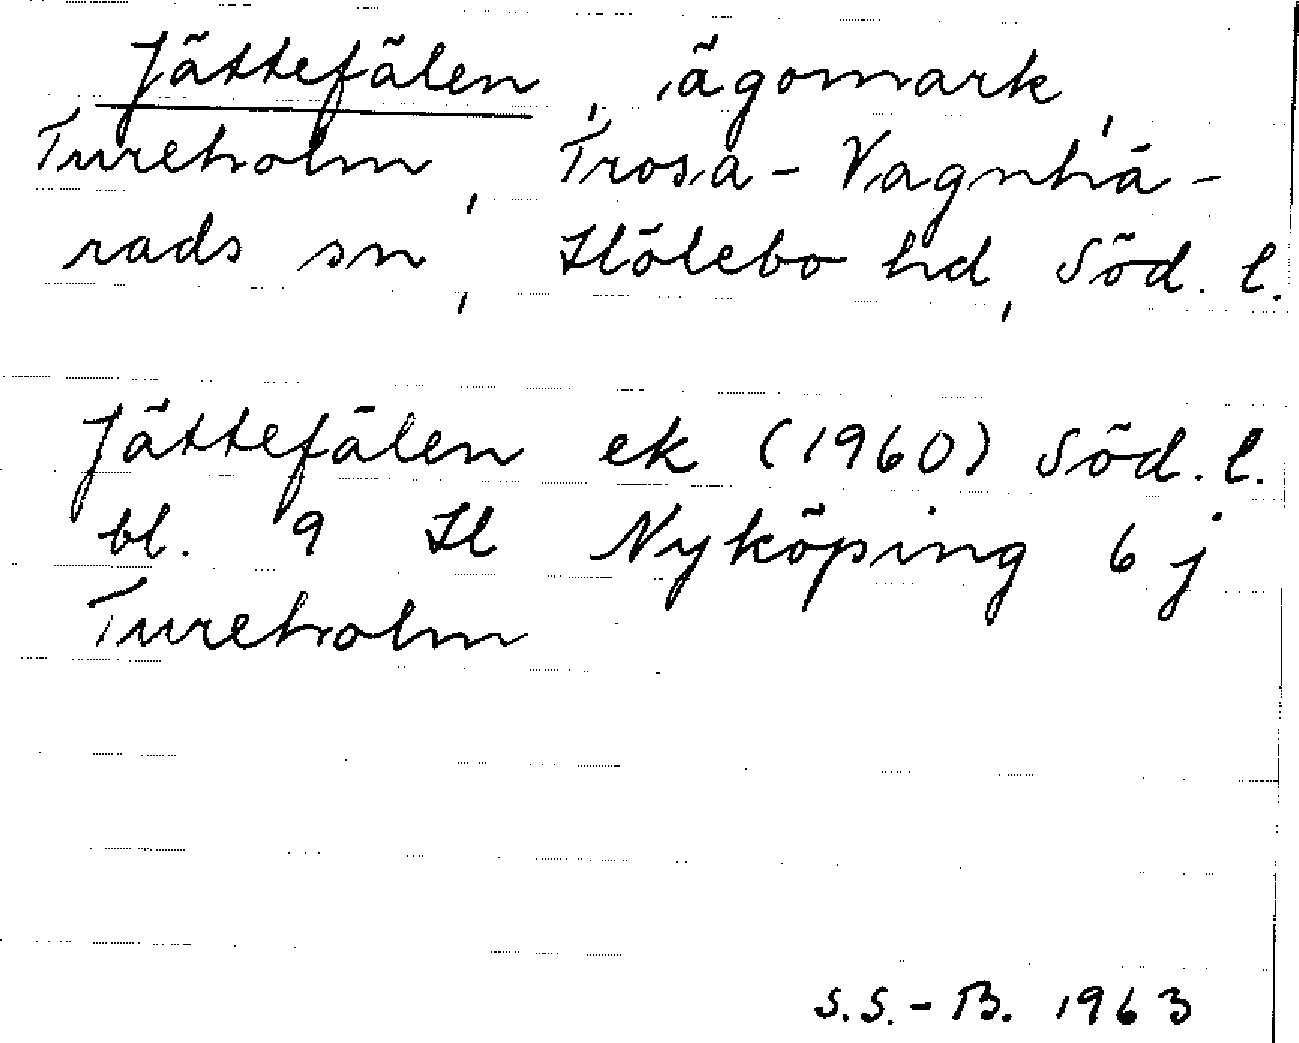 Jättefälen, ägomark,
Tureholm, Trosa-Vagnhä-
rads sn, Hölebo hd, Söd. l.
Jättefälen ek (1960) Söd. l.
bl. 9 Il Nyköping 6 j
Tureholm
S.S.-B. 1963